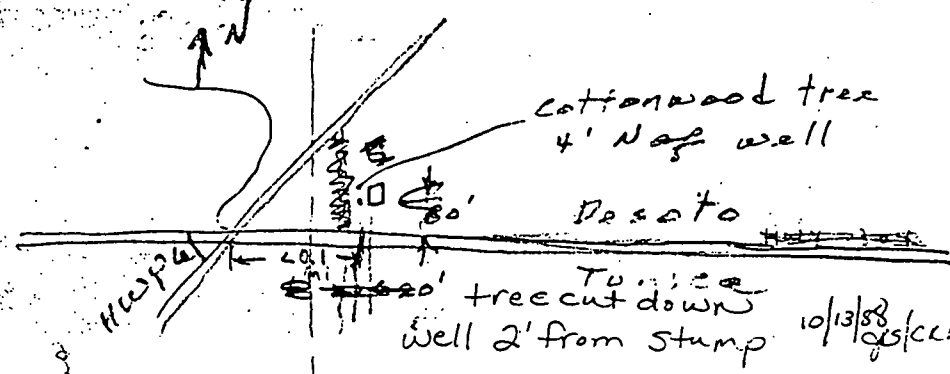 N
cottonwood tree
4' N of well
80'
Desoto
<0.1
mi
Hwy 61
tree cut down
well 2' from stump
10/13/88